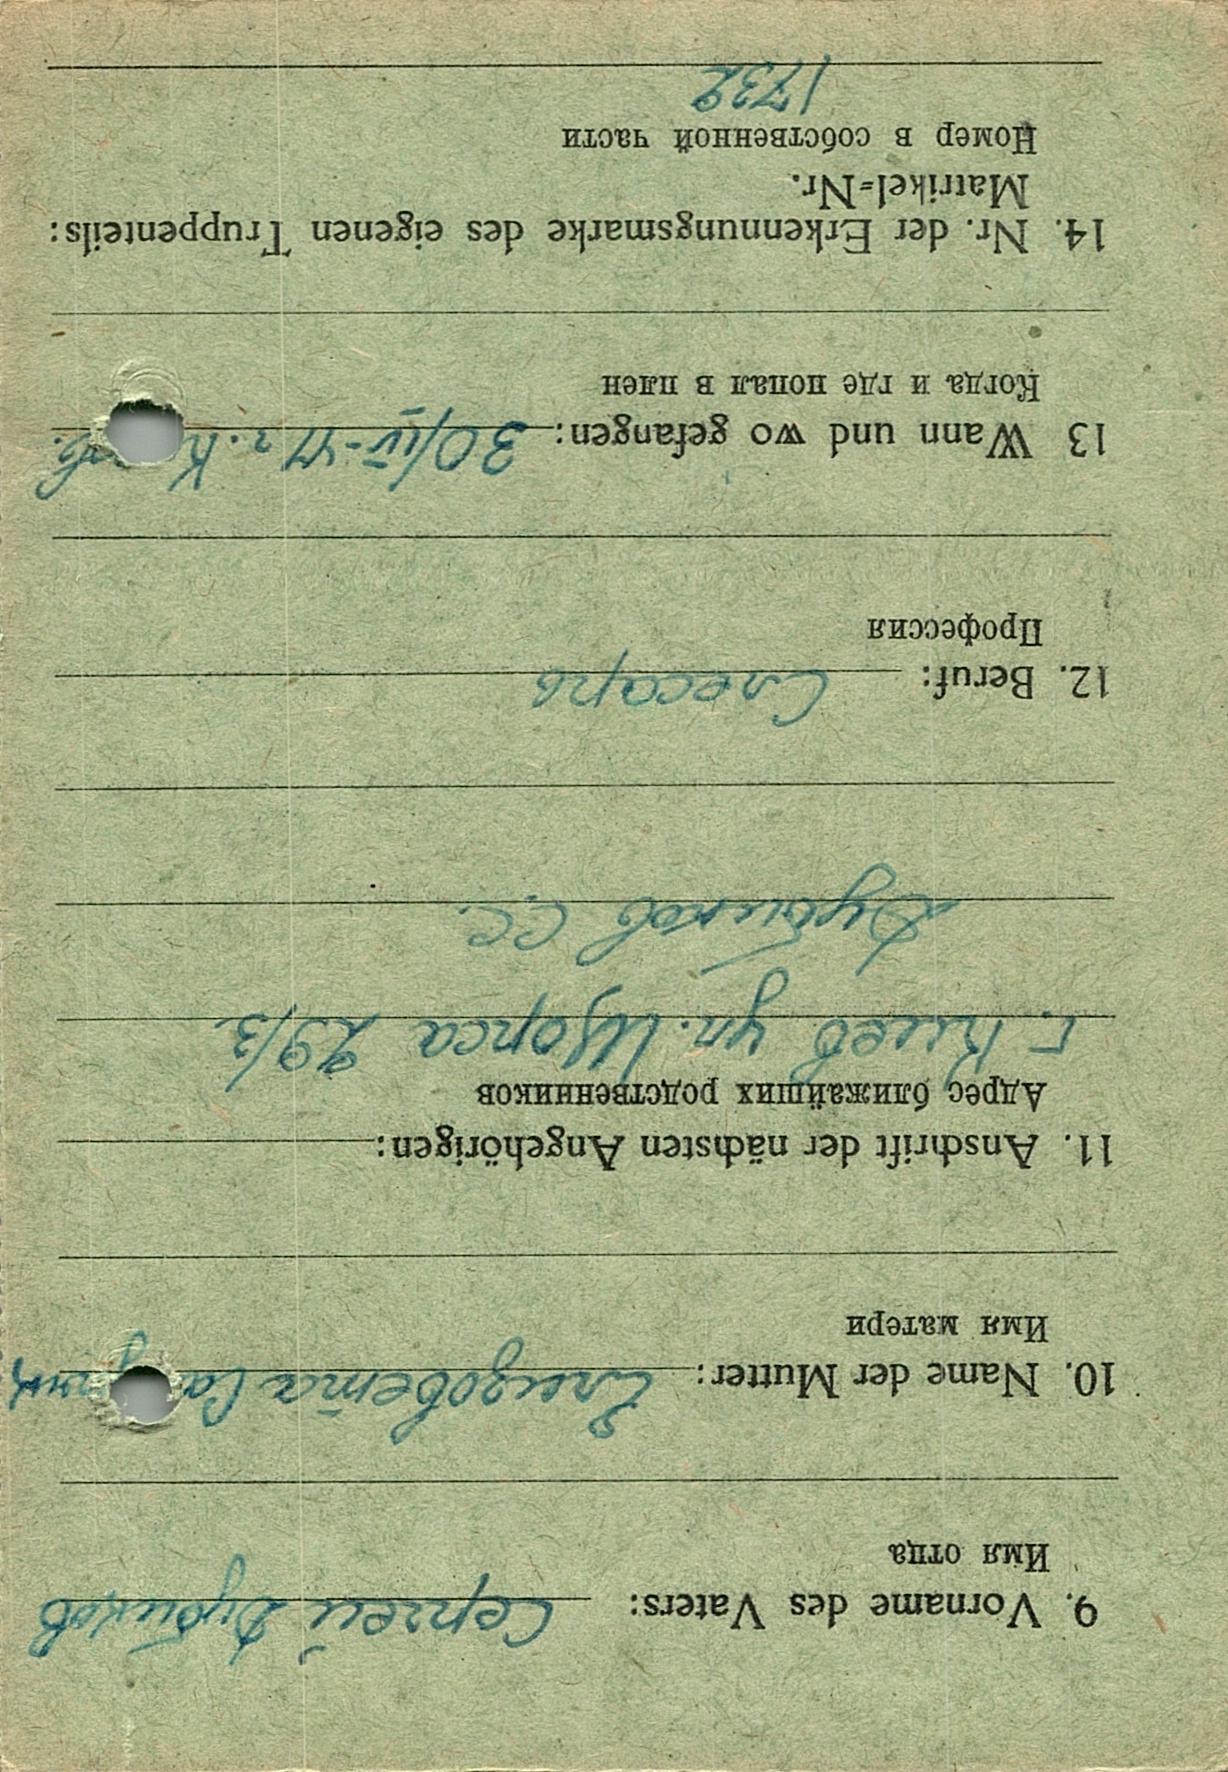 9. Vorname des Vaters: Сергей Дубиков
Имя отца
10. Name der Mutter: Елизовета
Имя матери
11. Anschrift der nächsten Angehörigen:
Адрес ближайших родственников
г. Киев ул. Щорса 29/3
Дубиков С.С.
12. Beruf: Слесарь
Профессия
13 Wann und wo gefangen:
Когда и где попал в плен
14. Nr. der Erkennungsmarke des eigenen Truppenteils:
Matrikel=Nr.
Номер в собственной части
1732